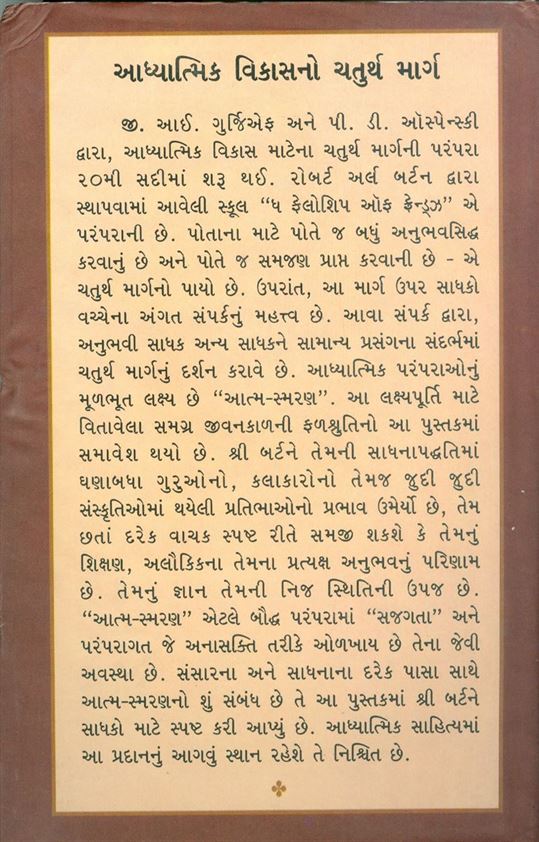 આધ્યાત્મિક વિકાસનો ચતુર્થ માર્ગ
જી. આઈ. ગુર્જિએફ અને પી. ડી. ઑસ્પેન્સ્કી
દ્વારા, આધ્યાત્મિક વિકાસ માટેના ચતુર્થ માર્ગની પરંપરા
૨૦મી સદીમાં શરૂ થઈ. રોબર્ટ અર્લ બર્ટન દ્વારા
સ્થાપવામાં આવેલી સ્કૂલ “ધ ફેલોશિપ ઑફ ફ્રેન્ડ્ઝ” એ
પરંપરાની છે. પોતાના માટે પોતે જ બધું અનુભવસિદ્ધ
કરવાનું છે અને પોતે જ સમજણ પ્રાપ્ત કરવાની છે - એ
ચતુર્થ માર્ગનો પાયો છે. ઉપરાંત, આ માર્ગ ઉપર સાધકો
વચ્ચેના અંગત સંપર્કનું મહત્ત્વ છે. આવા સંપર્ક દ્વારા,
અનુભવી સાધક અન્ય સાધકને સામાન્ય પ્રસંગના સંદર્ભમાં
ચતુર્થ માર્ગનું દર્શન કરાવે છે. આધ્યાત્મિક પરંપરાઓનું
મૂળભૂત લક્ષ્ય છે “આત્મ-સ્મરણ”. આ લક્ષ્યપૂર્તિ માટે
વિતાવેલા સમગ્ર જીવનકાળની ફળશ્રુતિનો આ પુસ્તકમાં
સમાવેશ થયો છે. શ્રી બર્ટને તેમની સાધનાપદ્ધતિમાં
ઘણાબધા ગુરુઓનો, કલાકારોનો તેમજ જુદી જુદી
સંસ્કૃતિઓમાં થયેલી પ્રતિભાઓનો પ્રભાવ ઉમેર્યો છે, તેમ
છતાં દરેક વાચક સ્પષ્ટ રીતે સમજી શકશે કે તેમનું
શિક્ષણ, અલૌકિકના તેમના પ્રત્યક્ષ અનુભવનું પરિણામ
છે. તેમનું જ્ઞાન તેમની નિજ સ્થિતિની ઉપજ છે.
“આત્મ-સ્મરણ” એટલે બૌદ્ધ પરંપરામાં “સજગતા” અને
પરંપરાગત જે અનાસક્તિ તરીકે ઓળખાય છે તેના જેવી
અવસ્થા છે. સંસારના અને સાધનાના દરેક પાસા સાથે
આત્મ-સ્મરણનો શું સંબંધ છે તે આ પુસ્તકમાં શ્રી બર્ટને
સાધકો માટે સ્પષ્ટ કરી આપ્યું છે. આધ્યાત્મિક સાહિત્યમાં
આ પ્રદાનનું આગવું સ્થાન રહેશે તે નિશ્ચિત છે.